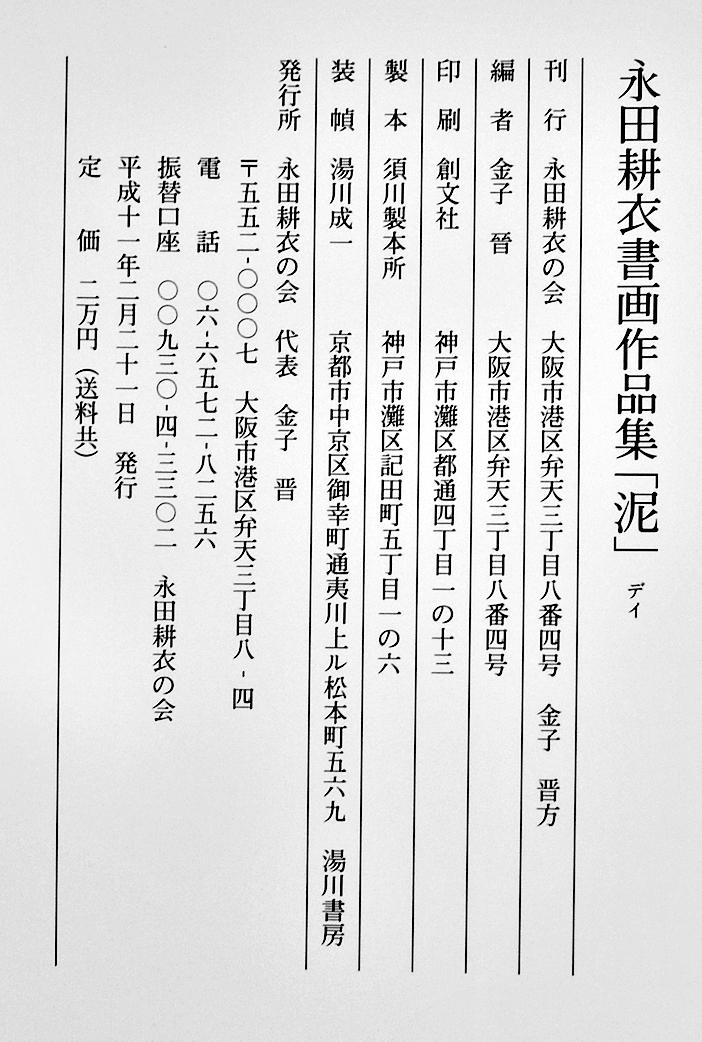 永田耕衣書画作品集「泥」 デイ
刊 行 永田耕衣の会 大阪市港区弁天三丁目八番四号 金子 晋方
編 者 金子 晉 大阪市港区弁天三丁目八番四号
印 刷 創文社 神戸市灘区都通四丁目一の十三
製 本 須川製本所 神戸市灘区記田町五丁目一の六
装 幀 湯川成一 京都市中京区御幸町通夷川上ル松本町五六九 湯川書房
発行所 永田耕衣の会 代表 金子 晋
〒五五二-〇〇〇七 大阪市港区弁天三丁目八-四
電 話 〇六-六五七二-八二五六
振替口座 〇〇九三〇-四-三三〇二 永田耕衣の会
平成十一年二月二十一日 発行
定 価 二万円（送料共）